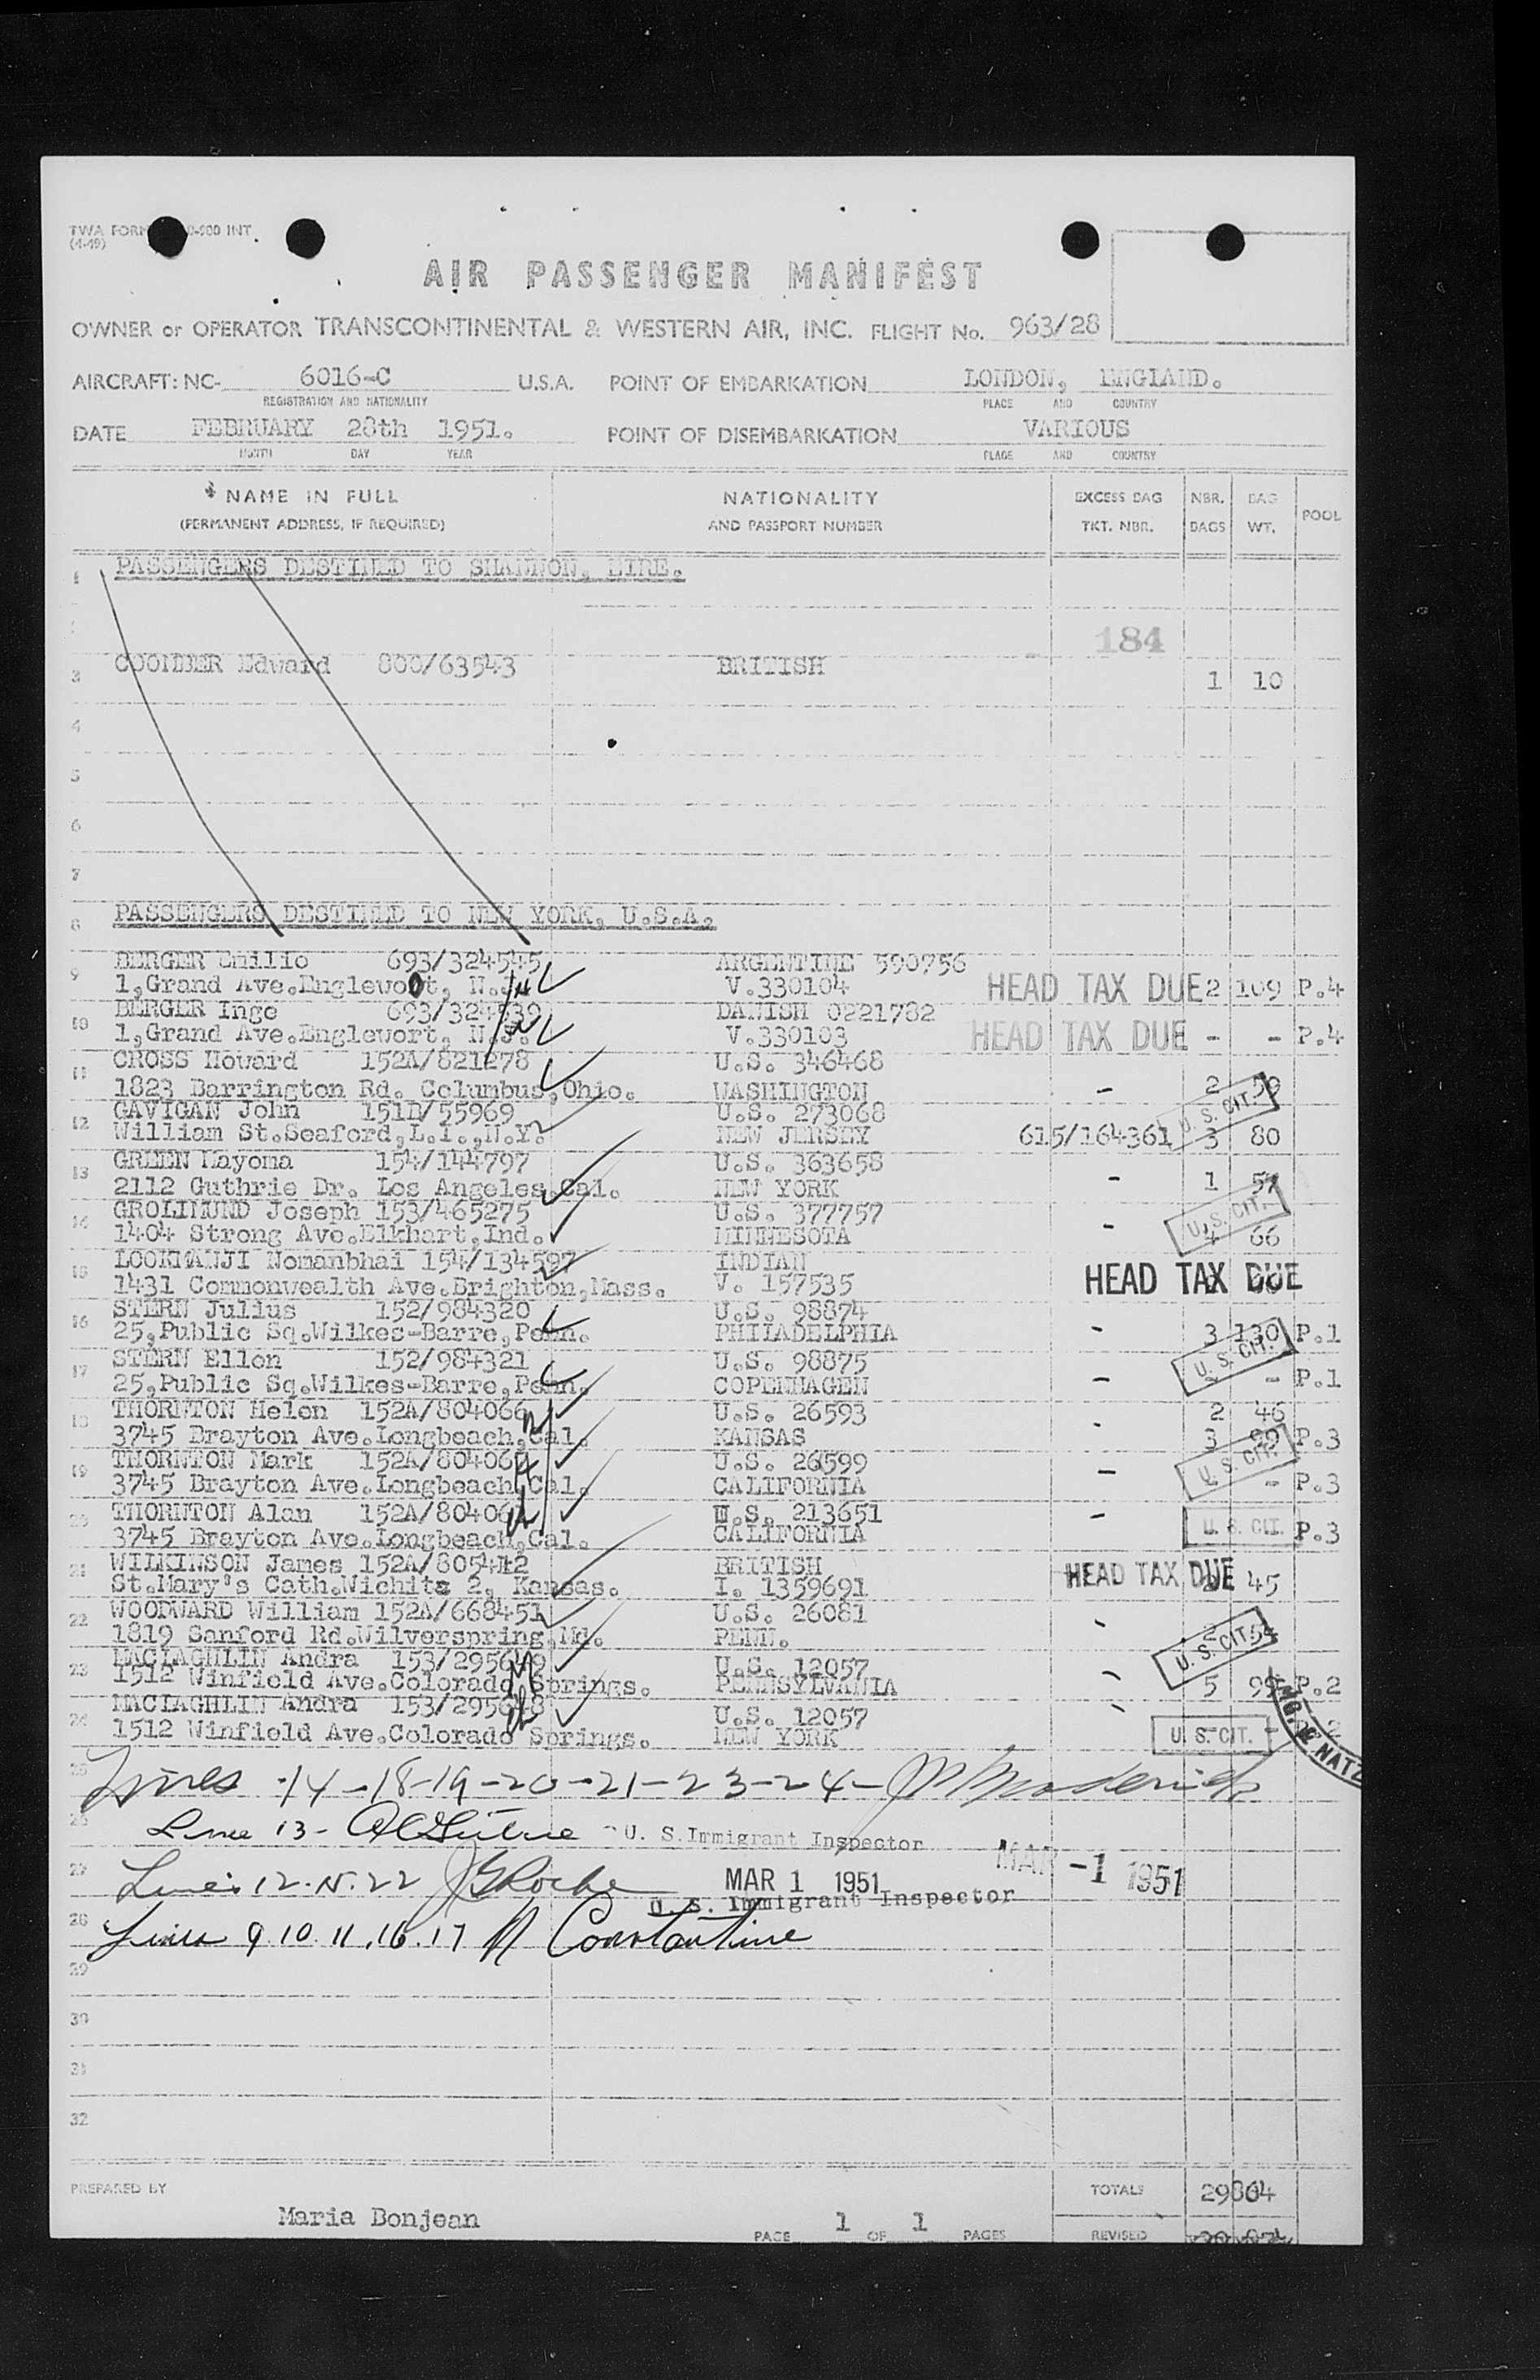 TWA FORM 0-900 INT.
(4-49)
AIR PASSENGER MANIFEST
OWNER or OPERATOR TRANSCONTINENTAL & WESTERN AIR, INC. FLIGHT No. 963/28
AIRCRAFT: NC- 6016-C U.S.A. POINT OF EMBARKATION LONDON, ENGLAND.
REGISTRATION AND NATIONALITY PLACE AND COUNTRY
DATE FEBRUARY 28th 1951. POINT OF DISEMBARKATION VARIOUS
MONTH DAY YEAR PLACE AND COUNTRY
NAME IN FULL NATIONALITY EXCESS BAG NBR. BAG POOL
(PERMANENT ADDRESS, IF REQUIRED) AND PASSPORT NUMBER TKT. NBR. BAGS WT.
1 PASSENGERS DESTINED TO SHANNON, EIRE.
184
3 COOMBER Edward 800/63543 BRITISH 1 10
4
5
6
7
8 PASSENGERS DESTINED TO NEW YORK, U.S.A.
BERGER Emilio 693/324545 ARGENTINE 590756
9 1,Grand Ave.Englewoot, N.J. V.330104 HEAD TAX DUE 2 109 P.4
BERGER Inge 693/324539 DANISH 0221782
10 1,Grand Ave.Englewort, N.J. V.330103 HEAD TAX DUE - - P.4
CROSS Howard 152A/821278 U.S. 346468
11 1823 Barrington Rd. Columbus,Ohio. WASHINGTON - 2 50
GAVIGAN John 151D/55969 U.S. 273068 U.S. CIT.
12 William St.Seaford,L.I.,N.Y. NEW JERSEY 615/164361 3 80
GREEN Mayoma 154/144797 U.S. 363658
13 2112 Guthrie Dr. Los Angeles,Cal. NEW YORK - 1 57
GROLIMUND Joseph 153/465275 U.S. 377757 U.S. CIT.
14 1404 Strong Ave.Elkhart,Ind. MINNESOTA - 4 66
LOOKMANJI Nomanbhai 154/134597 INDIAN
15 1431 Commonwealth Ave.Brighton,Mass. V. 157535 HEAD TAX DUE
STERN Julius 152/984320 U.S. 98874
16 25,Public Sq.Wilkes-Barre,Penn. PHILADELPHIA - 3 130 P.1
STERN Ellen 152/984321 U.S. 98875 U.S. CIT.
17 25,Public Sq.Wilkes-Barre,Penn. COPENHAGEN - - - P.1
THORNTON Helen 152A/804066 U.S. 26593 2 46
18 3745 Brayton Ave.Longbeach,Cal. KANSAS - 3 99 P.3
THORNTON Mark 152A/80406 U.S. 26599 U.S. CIT.
19 3745 Brayton Ave.Longbeach,Cal. CALIFORNIA - - P.3
THORNTON Alan 152A/80406 U.S. 213651
20 3745 Brayton Ave.Longbeach,Cal. CALIFORNIA - U. S. CIT. P.3
21 WILKINSON James 152A/805412 BRITISH HEAD TAX DUE
St.Mary's Cath.Wichita 2, Kansas. I. 1359691 45
WOODWARD William 152A/668451 U.S. 26081
22 1819 Sanford Rd.Wilverspring,Md. PENN. - 2 54 U. S. CIT.
MACLAGHLIN Andra 153/295649 U.S. 12057
23 1512 Winfield Ave.Colorado Springs. PENNSYLVANIA - 5 99 P.2
MACLAGHLIN Andra 153/295648 U.S. 12057
24 1512 Winfield Ave.Colorado Springs. NEW YORK - U. S. CIT. - 2
& NATZ
25 Lines 14-18-19-20-21-23-24-
26 Line 13- U. S. Immigrant Inspector
27 Lines 12.15.22 J Roche MAR 1 1951 MAR -1 1951
U. S. Immigrant Inspector
28 Lines 9.10.11.16.17 Constantine
29
30
31
32
PREPARED BY TOTALS 29 864
Maria Bonjean PAGE 1 OF 1 PAGES REVISED